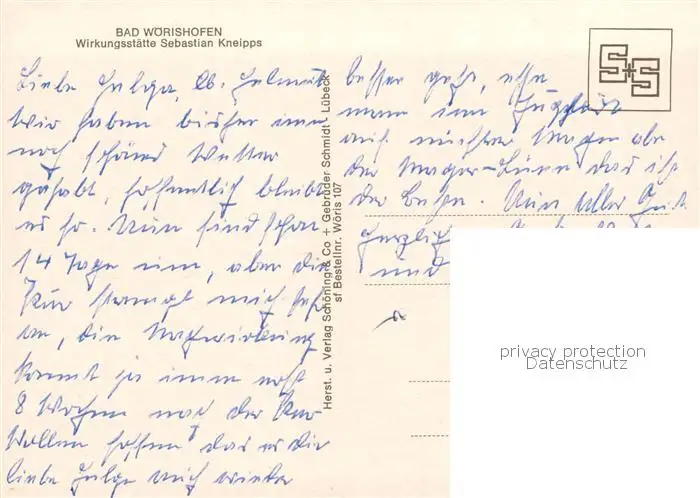 BAD WÖRISHOFEN
Wirkungsstätte Sebastian Kneipps
Liebe Helga, lb. Helmut
wir haben bisher imm
noch schönes Wetter
gehabt, hoffentlich bleibt
es so. Nun sind schon
14 Tage um, aber die
Kur strengt mich sehr
an, die Nachwirkung
kommt ja imm erst
8 Wochen nach der Kur
Wollen hoffen das es dir
liebe Helga auch wieder
besser geht, esse
auf
der das ist
der Beste. Nun alles Gute
herzlich
und
Herst. u. Verlag Schöning & Co + Gebrüder Schmidt · Lübeck
sf Bestellnr. Wöris 107
S+S
privacy protection
Datenschutz